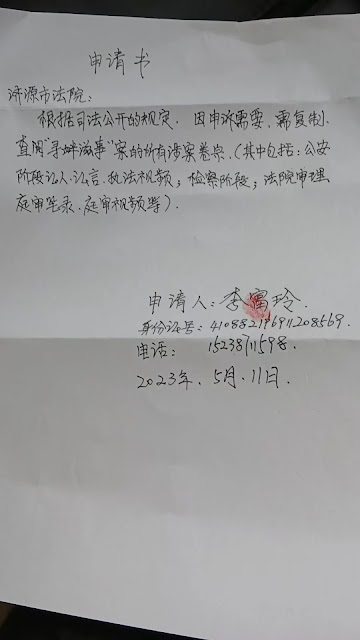 申请书
济源市法院:
根据司法公开的规定、因申诉需要、需复制、
查阅“寻衅滋事”案的所有涉案卷宗.(其中包括:公安
阶段证人、证言、执法视频;检察阶段;法院审理
庭审笔录、庭审视频等).
申请人:李富玲.
身份证号:410882196911208569.
电话: 15238711598.
2023年.5月.11日.